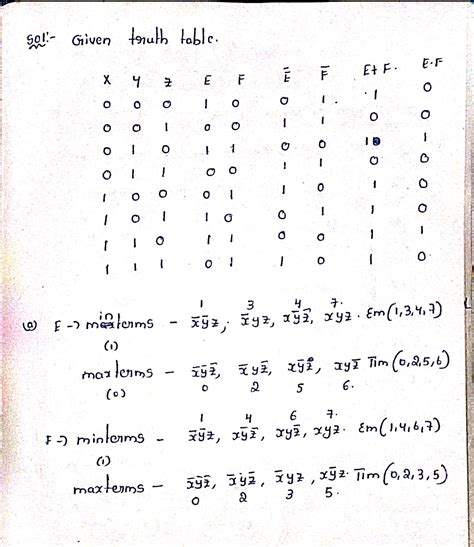 Sol:- Given truth table.
X Y Z E F E̅ F̅ E+F. E.F
0 0 0 1 0 0 1 1 0
0 0 1 0 0 1 1 0 0
0 1 0 1 1 0 0 1 1
0 1 1 0 0 1 1 0 0
1 0 0 0 1 1 0 1 0
1 0 1 1 0 0 1 1 0
1 1 0 1 1 0 0 1 1
1 1 1 0 1 1 0 1 0
1 3 4 7.
(a) E → minterms - x̅y̅z, x̅yz, xy̅z̅, xyz. Σm(1,3,4,7)
(1)
maxterms - x̅y̅z̅, x̅yz̅, xy̅z, xyz̅ πm(0,2,5,6)
(0) 0 2 5 6.
1 4 6 7.
F → minterms - x̅y̅z, xy̅z̅, xyz̅, xyz. Σm(1,4,6,7)
(1)
maxterms - x̅y̅z̅, x̅yz̅, x̅yz, xy̅z. πm(0,2,3,5)
0 2 3 5.